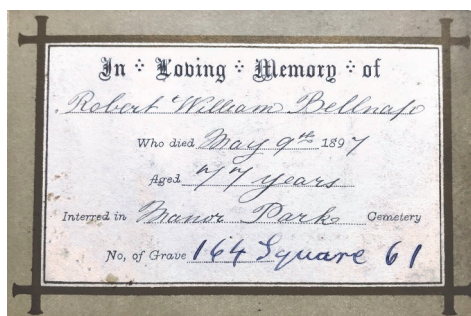 In Loving Memory of
Robert William Bellnap
Who died May 9th 1897
Aged 77 years
Interred in Manor Park Cemetery
No, of Grave 164 Square 61